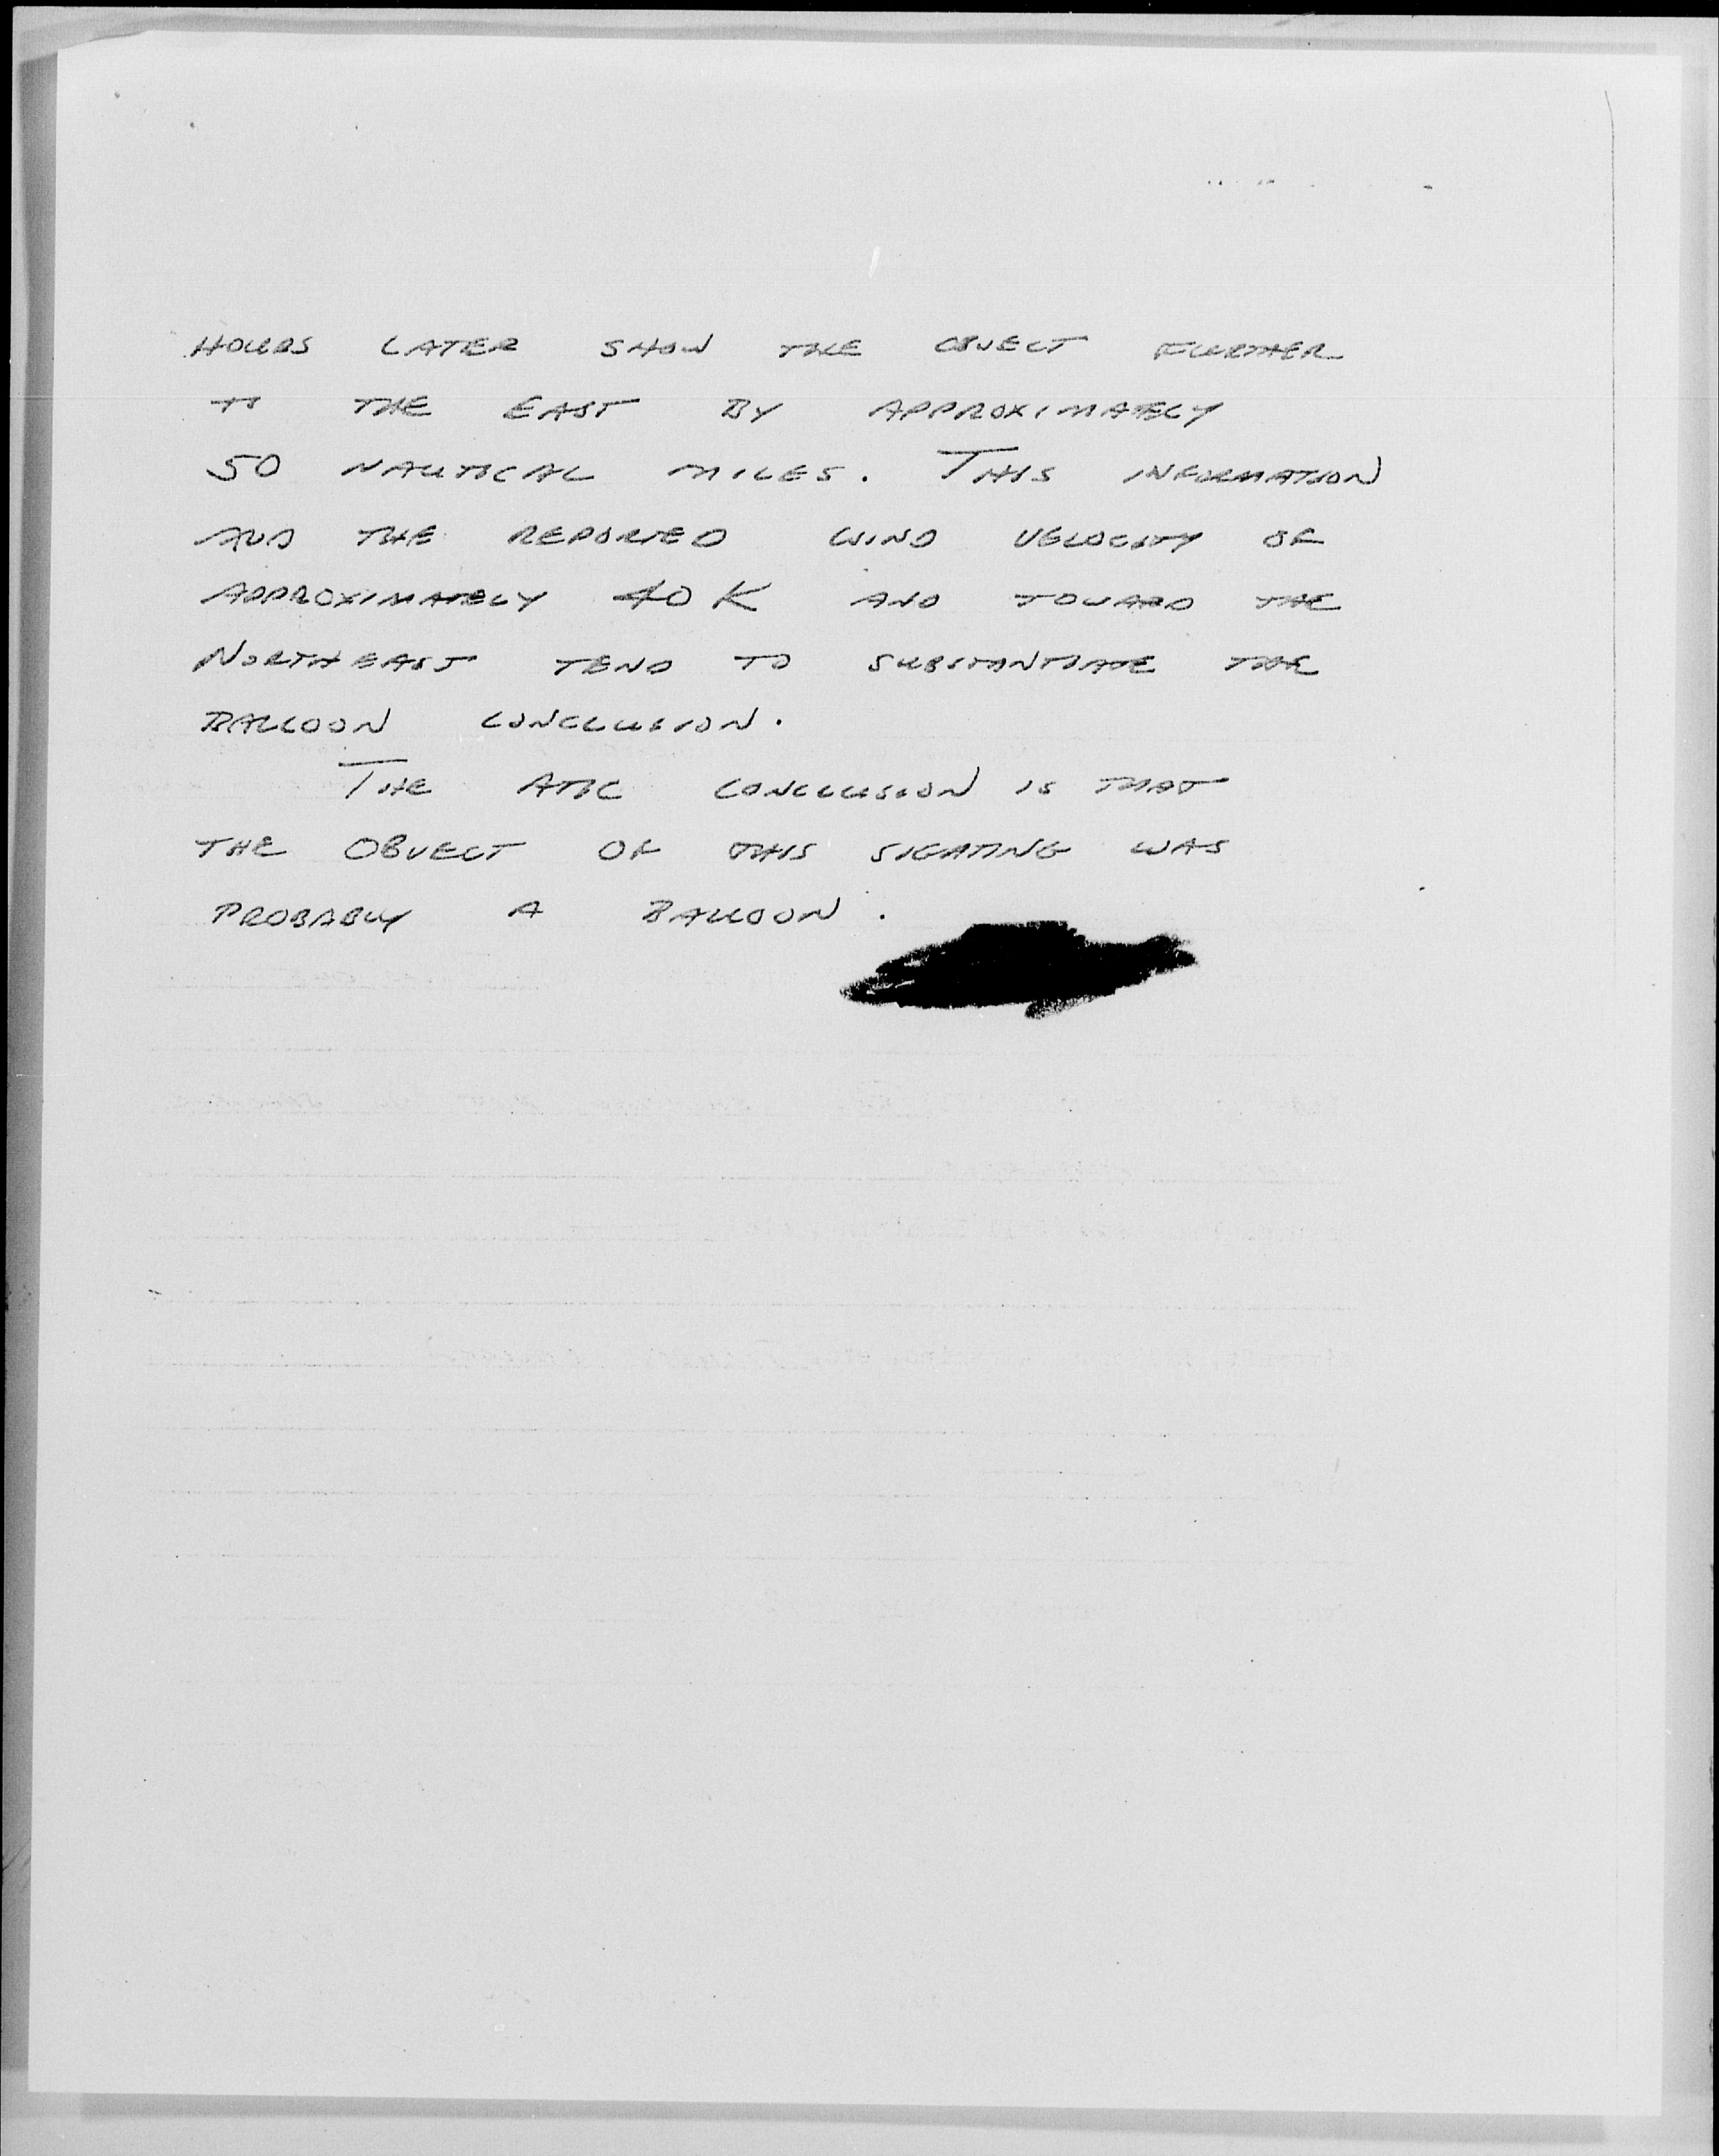 HOURS LATER SHOW THE OBJECT FURTHER
TO THE EAST BY APPROXIMATELY
50 NAUTICAL MILES. THIS INFORMATION
AND THE REPORTED WIND VELOCITY OF
APPROXIMATELY 40 K AND TOWARD THE
NORTHEAST TEND TO SUBSTANTIATE THE
BALLOON CONCLUSION.
THE ATIC CONCLUSION IS THAT
THE OBJECT OF THIS SIGHTING WAS
PROBABLY A BALLOON.